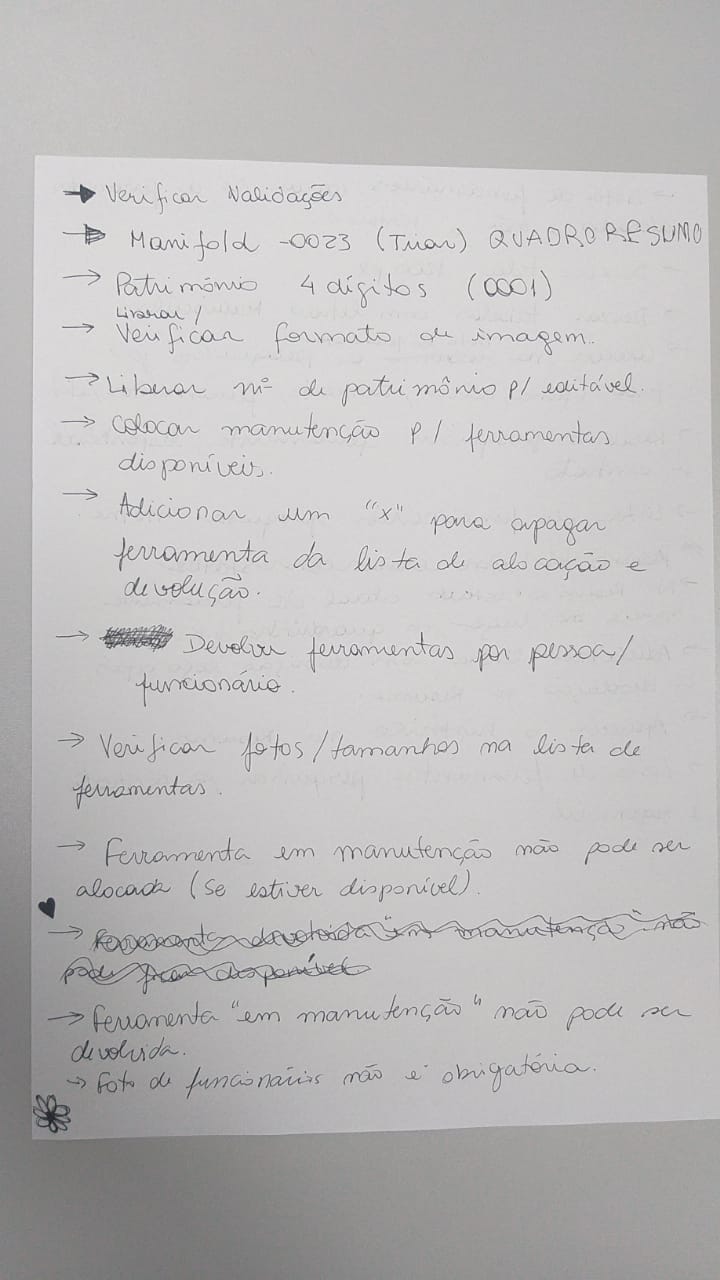 → Verificar Validações
→ Manifold -0023 (Tirar) QUADRO RESUMO
→ Patrimônio 4 dígitos (0001)
Liberar/
→ Verificar formato de imagem.
→ Liberar nº de patrimônio p/ editável.
→ Colocar manutenção p/ ferramentas
disponíveis.
→ Adicionar um "x" para apagar
ferramenta da lista de alocação e
devolução.
→ Devolver ferramentas por pessoa/
funcionário.
→ Verificar fotos/tamanhos na lista de
ferramentas.
→ Ferramenta em manutenção não pode ser
alocada (se estiver disponível).
→ Ferramenta devolvida "em manutenção" não
pode ficar disponível
→ Ferramenta "em manutenção" não pode ser
devolvida.
→ Foto de funcionários não é obrigatória.